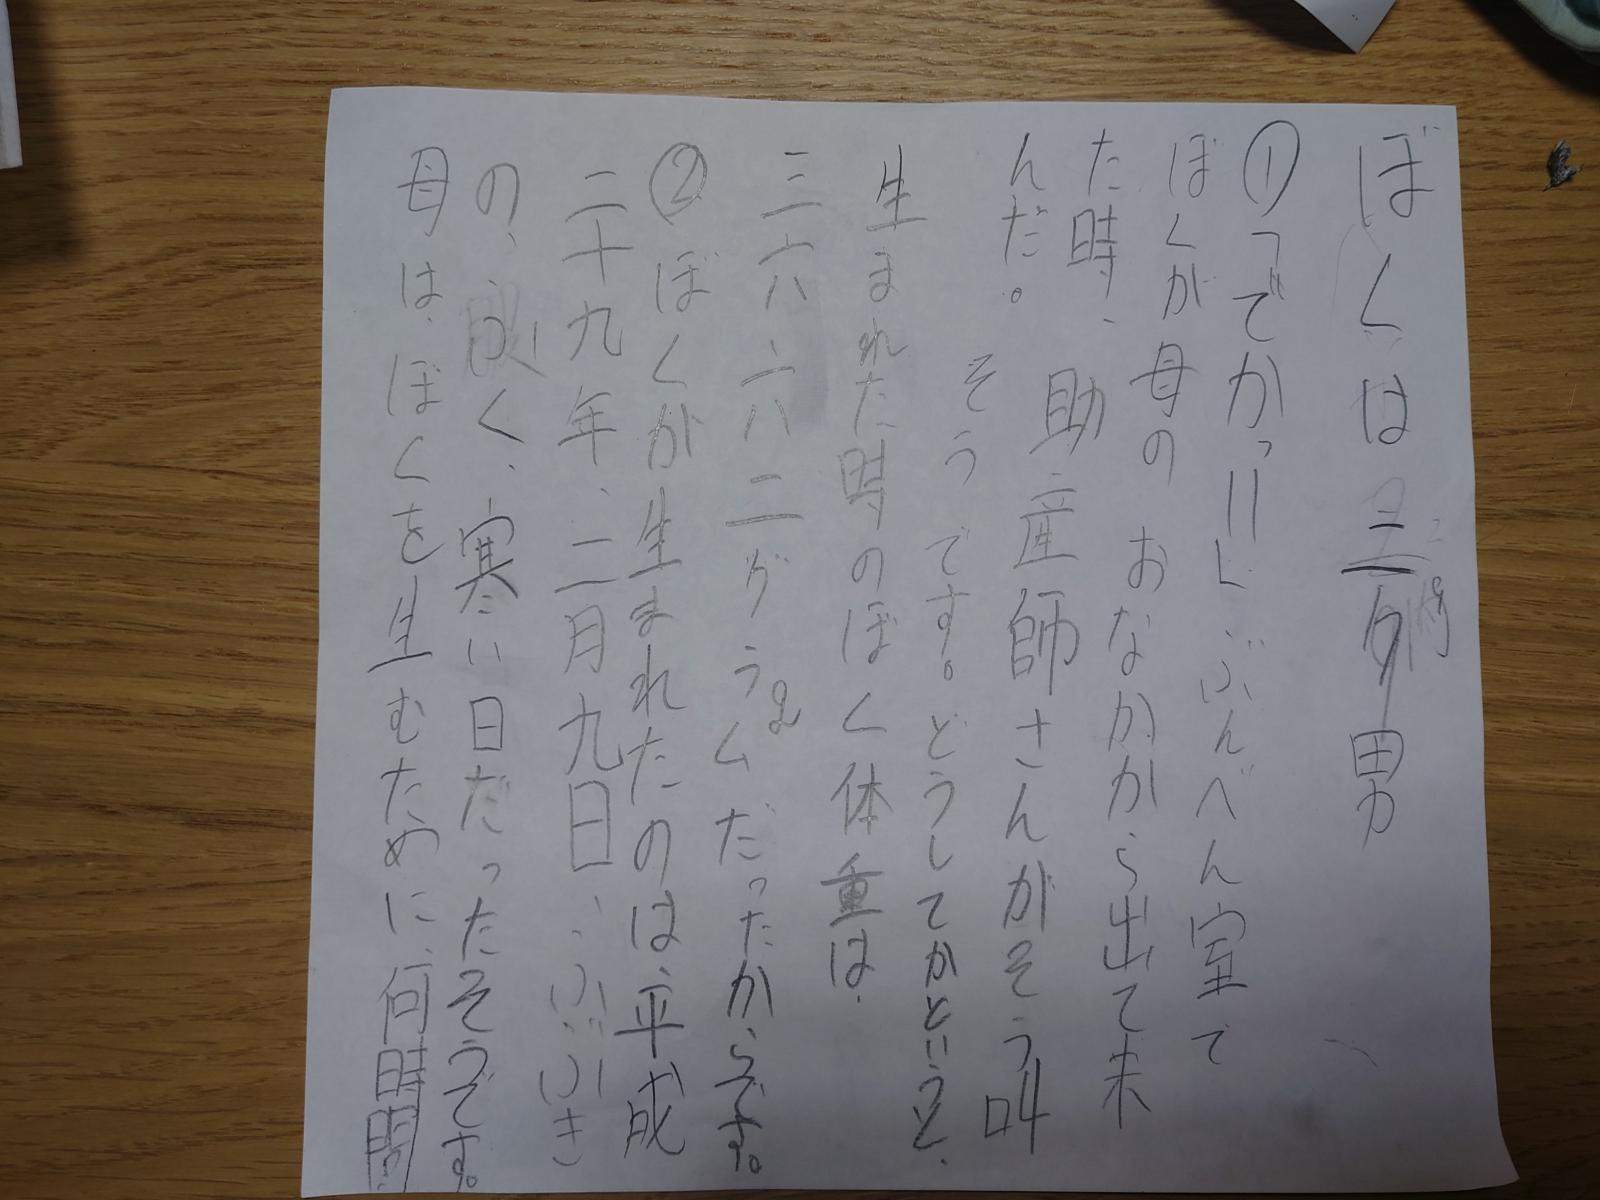 ぼくは三男
①「でかっ!!」ぶんべん室で
ぼくが母のおなかから出て来
た時、助産師さんがそう叫
んだ。そうです。どうしてかというと、
生まれた時のぼく体重は、
三六六二グラムだったからです。
②ぼくが生まれたのは平成
二十九年、二月九日、ふぶき
の、すごく、寒い日だったそうです。
母は、ぼくを生むために、何時間